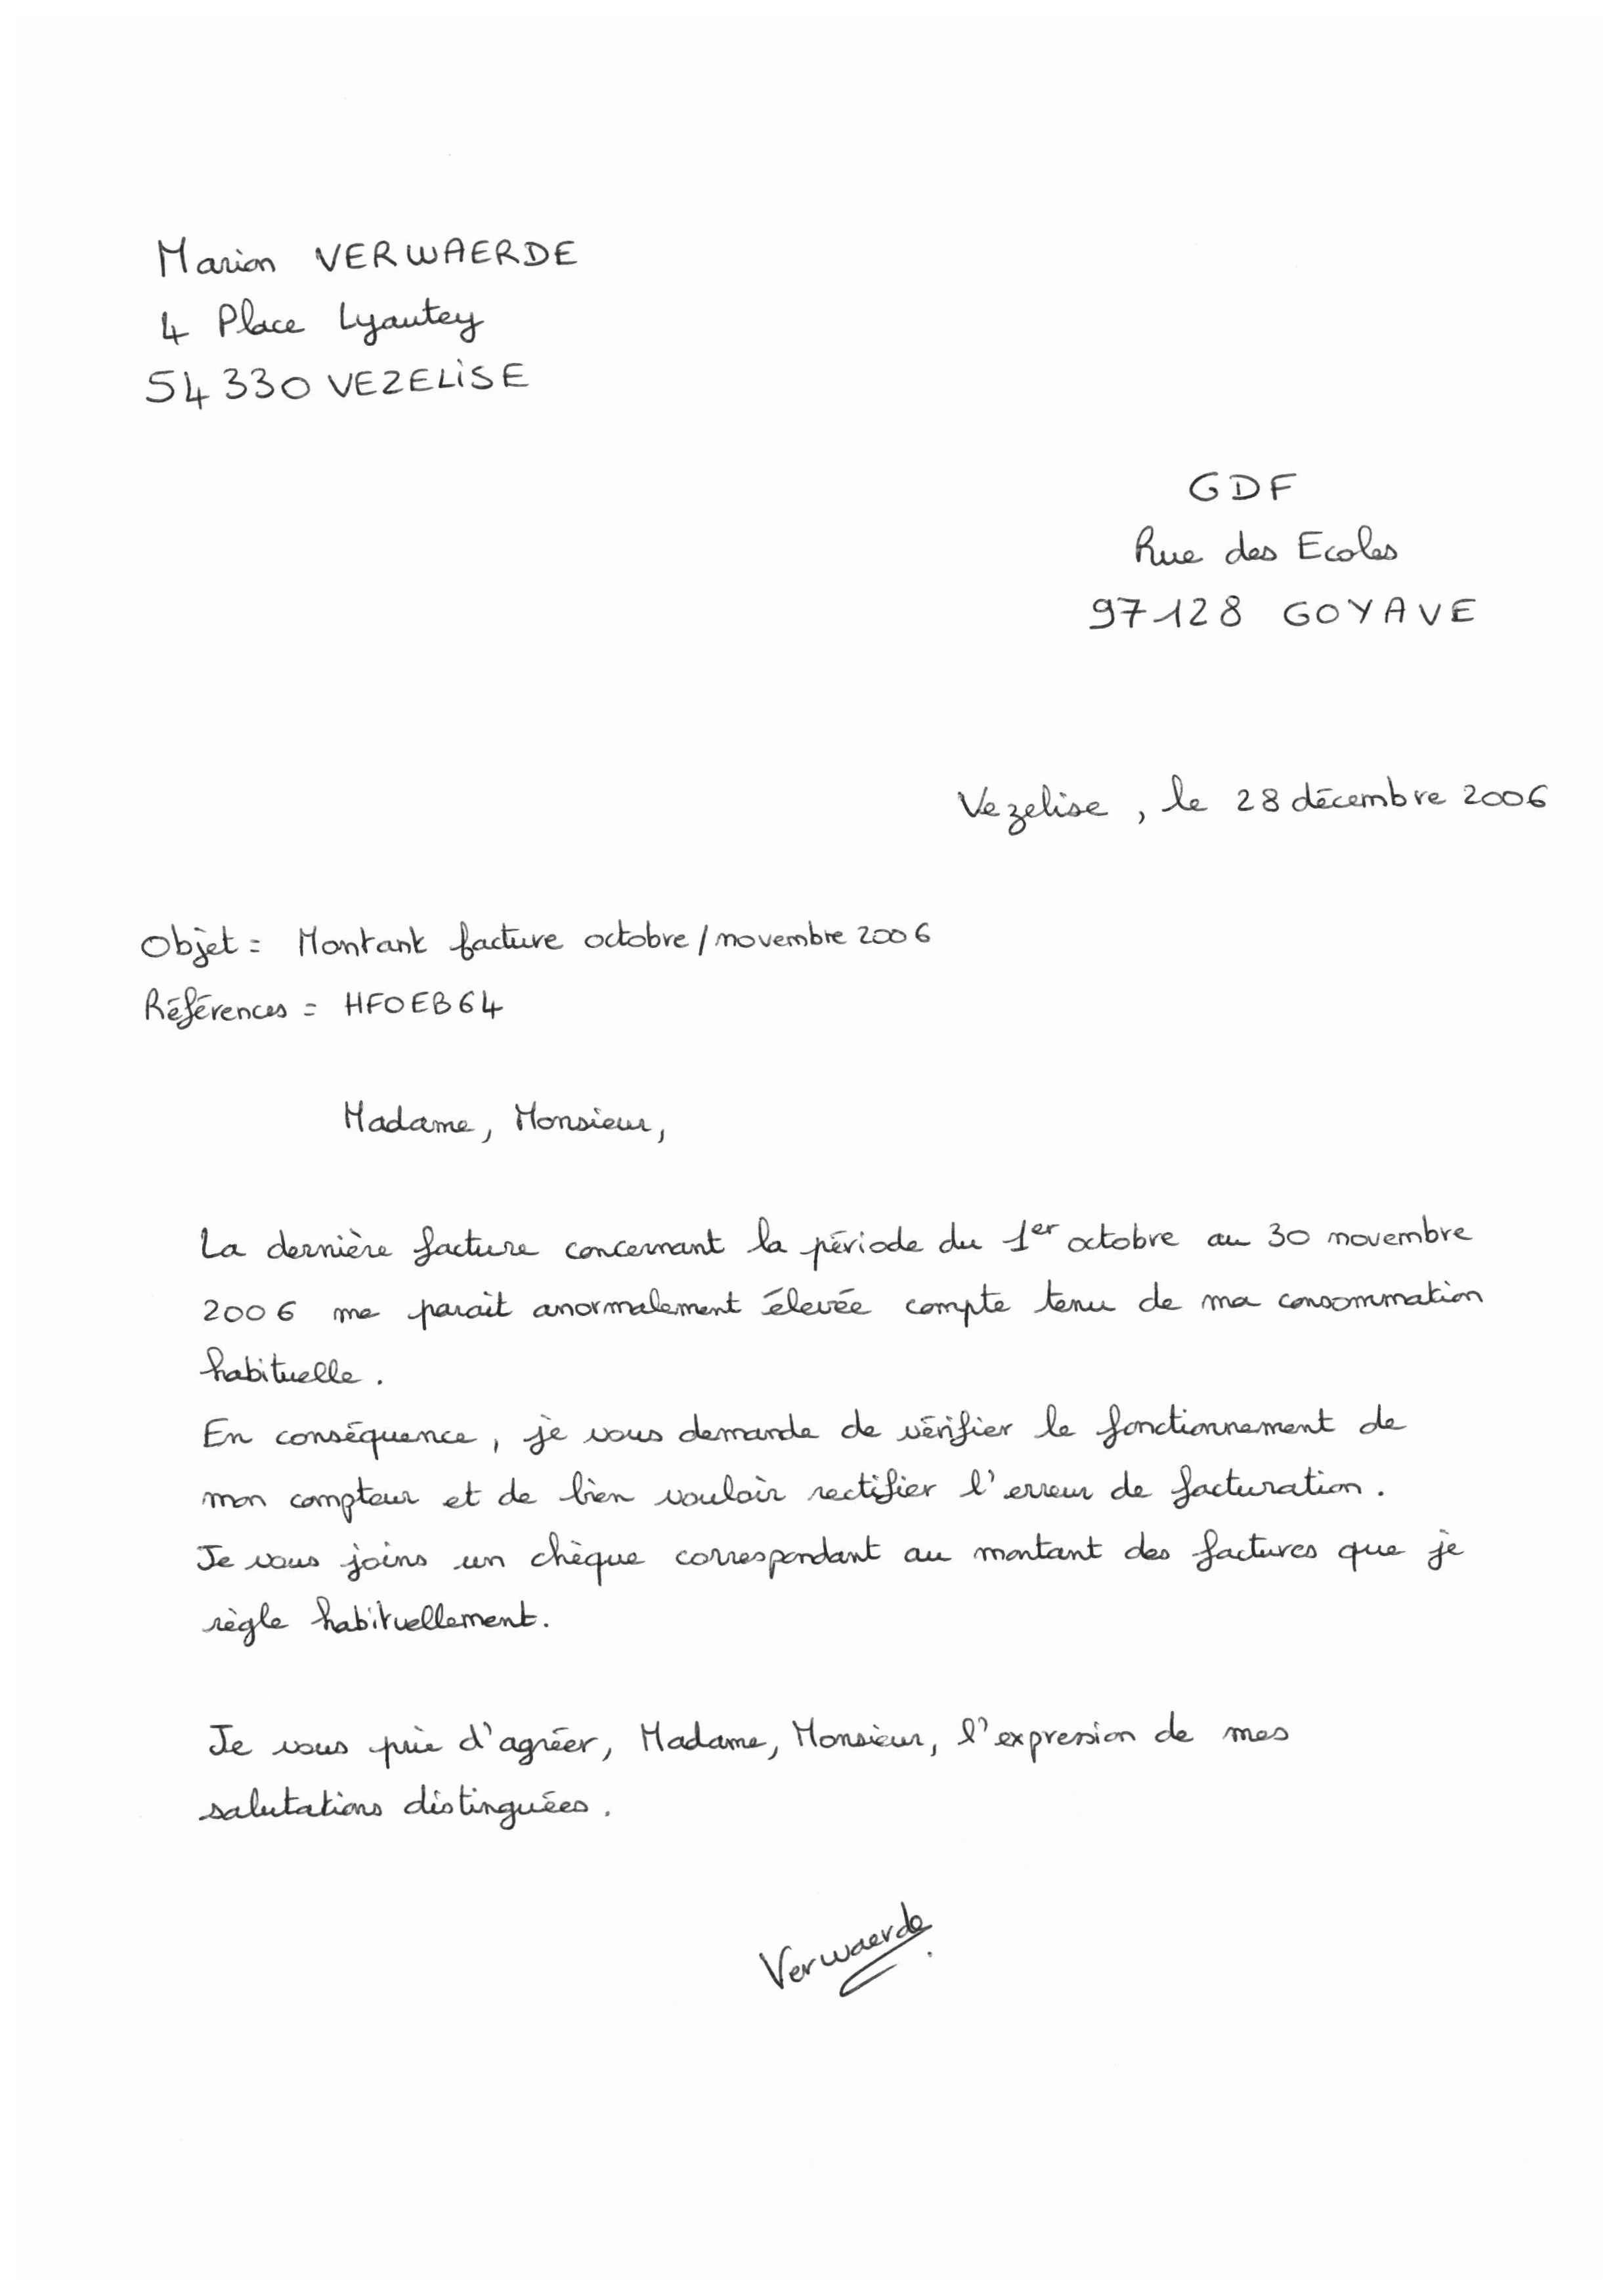 Marion VERWAERDE
4 Place Lyautey
54330 VEZELISE
GDF
Rue des Ecoles
97128 GOYAVE
Vezelise, le 28 décembre 2006
Objet : Montant facture octobre/novembre 2006
Références : HFOEB64
Madame, Monsieur,
La dernière facture concernant la période du 1er octobre au 30 novembre
2006 me parait anormalement élevée compte tenu de ma consommation
habituelle.
En conséquence, je vous demande de vérifier le fonctionnement de
mon compteur et de bien vouloir rectifier l'erreur de facturation.
Je vous joins un chèque correspondant au montant des factures que je
règle habituellement.
Je vous prie d'agréer, Madame, Monsieur, l'expression de mes
salutations distinguées.
Verwaerde